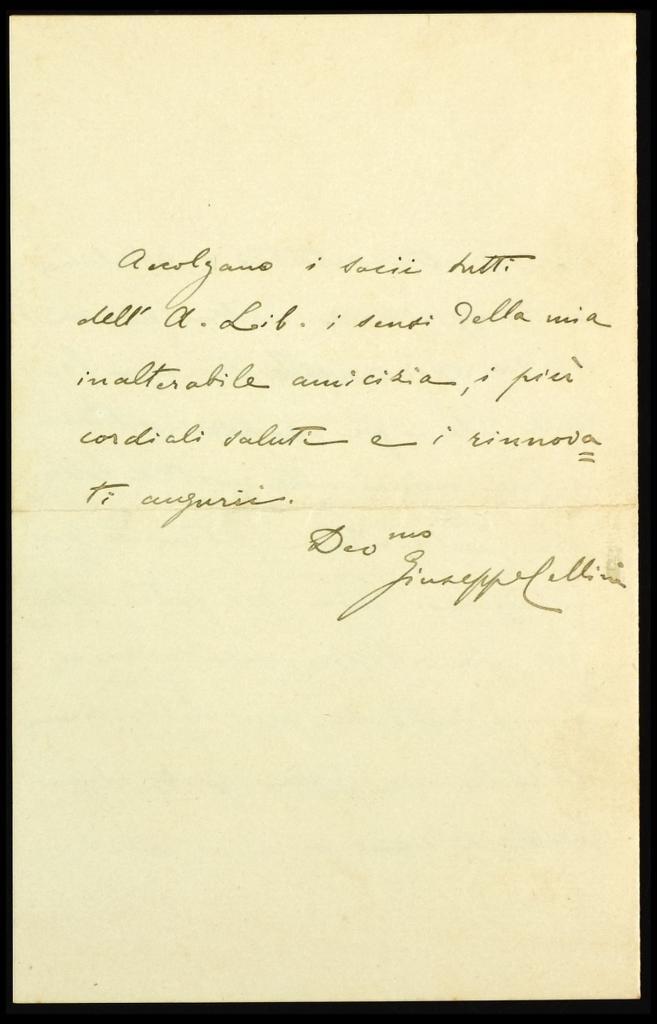 Accolgano i socii tutti
dell' A. Lib. i sensi della mia
inalterabile amicizia, i più
cordiali saluti e i rinnova=
ti augurii.
Devmo
Giuseppe Cellini